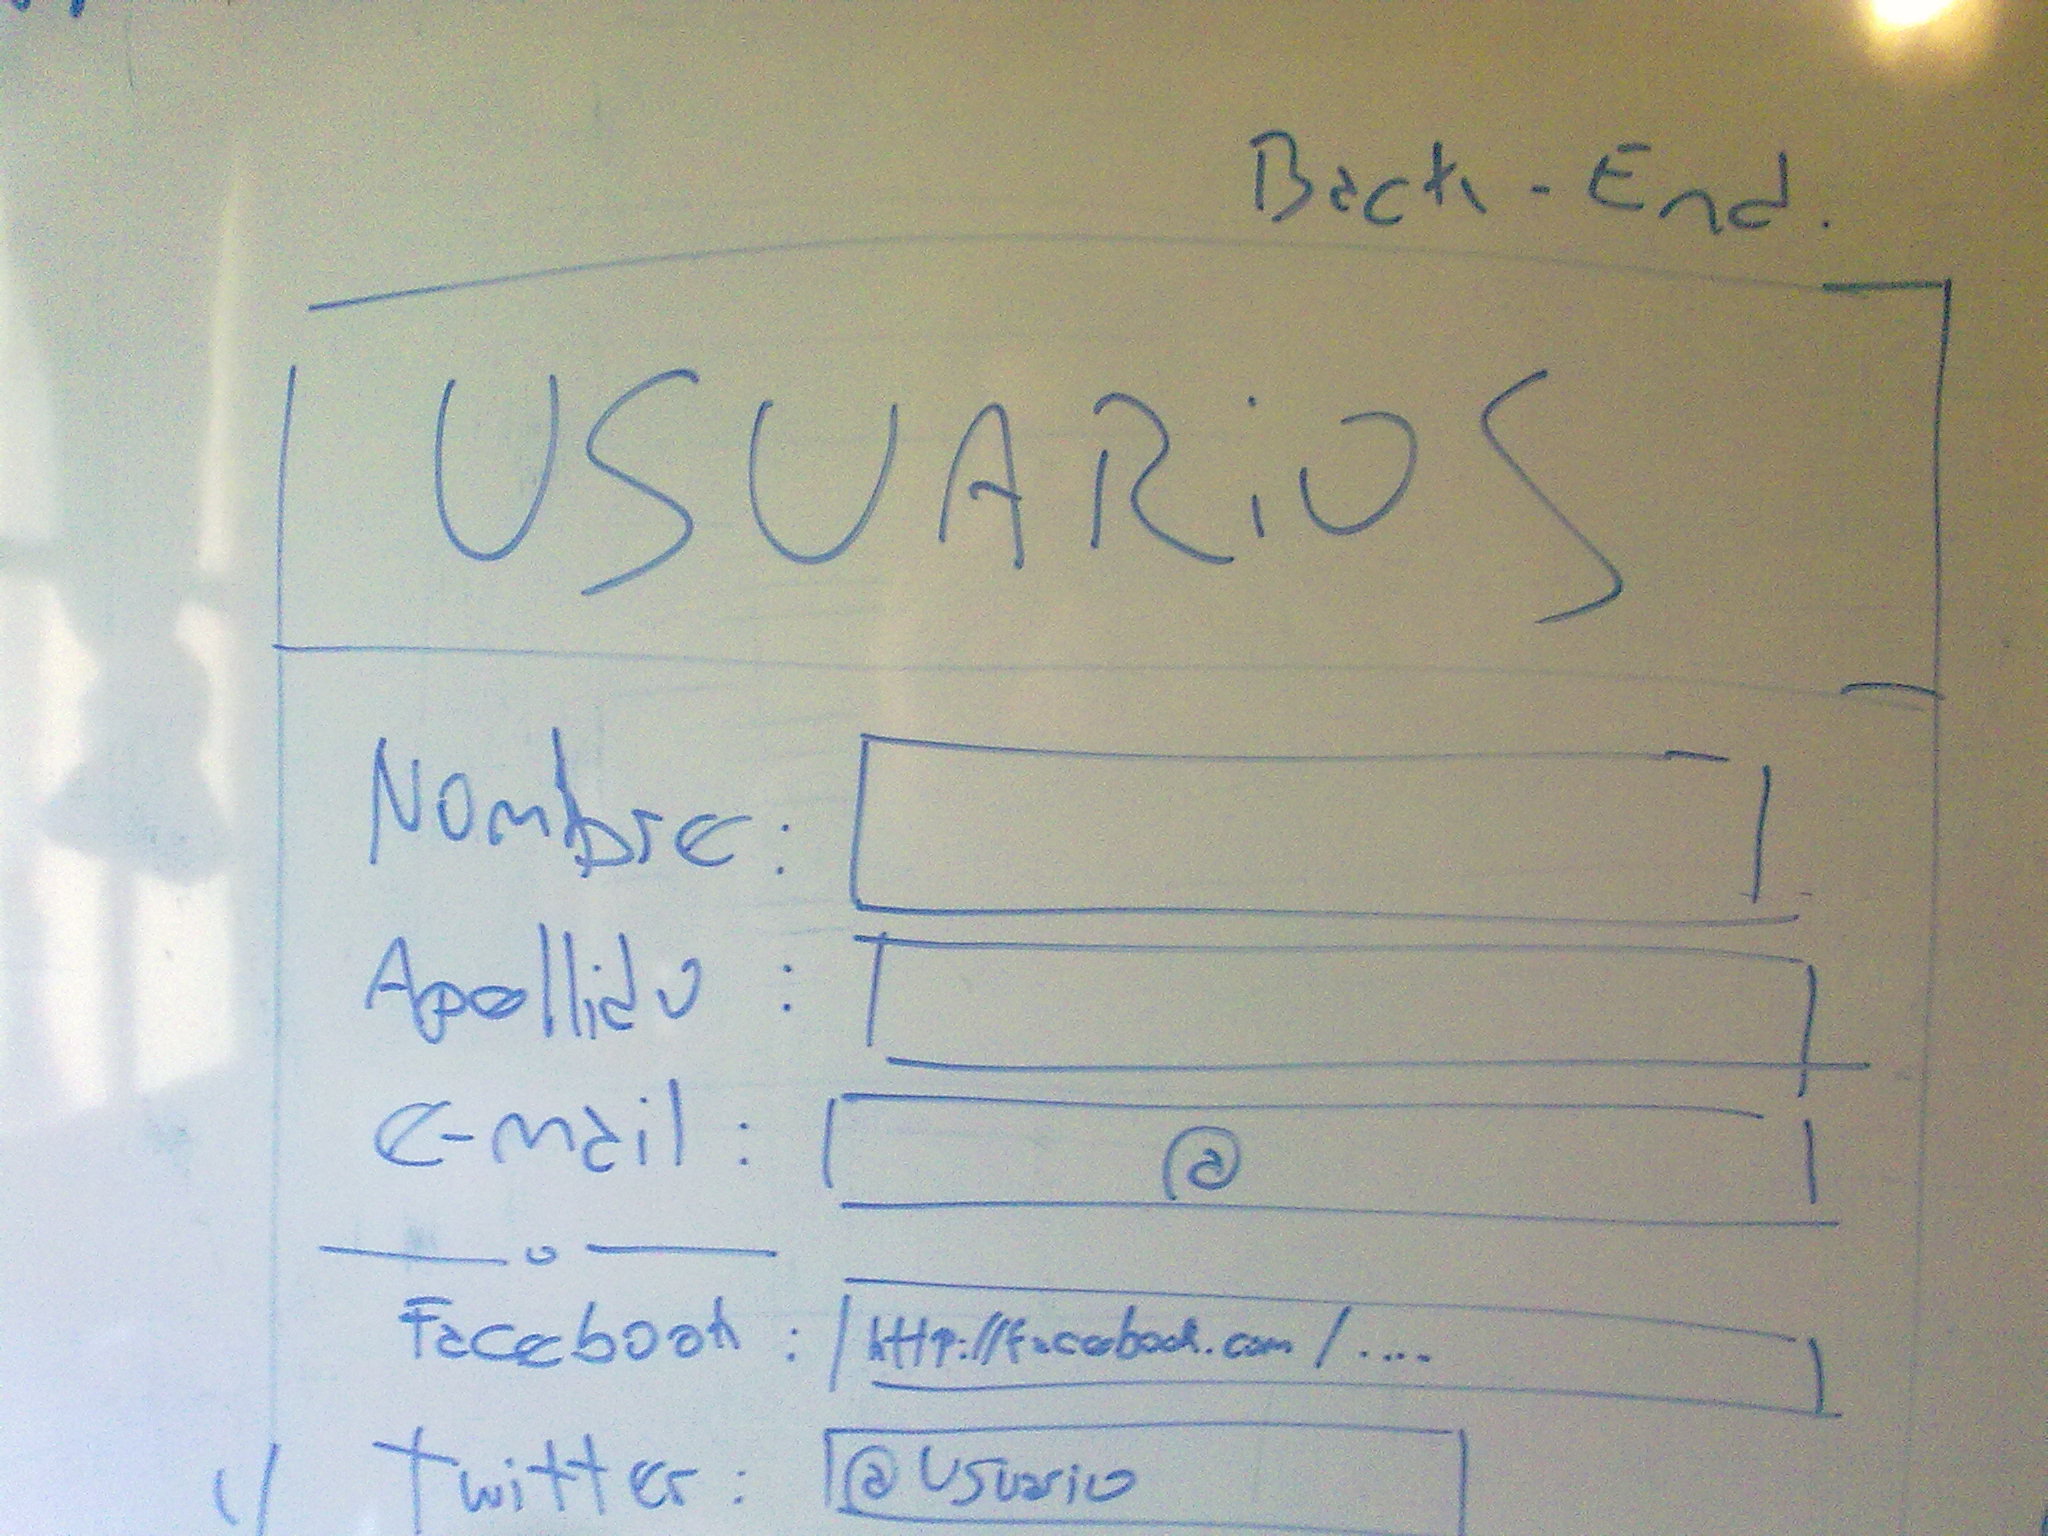 Back-End.
USUARiOS
Nombre:
Apellido :
e-mail: @
Facebook : http://facebook.com/....
Twitter: @Usuario